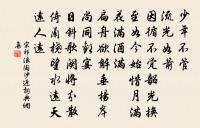 少年不管
流光如箭
因循不覺韶光換
至如今始惜月滿
花滿酒滿
扁舟欲解垂楊岸
尚同歡宴
日斜歌闋將分散
倚蘭橈望水遠天
遠人遠
宋祁浪淘沙近詞典網